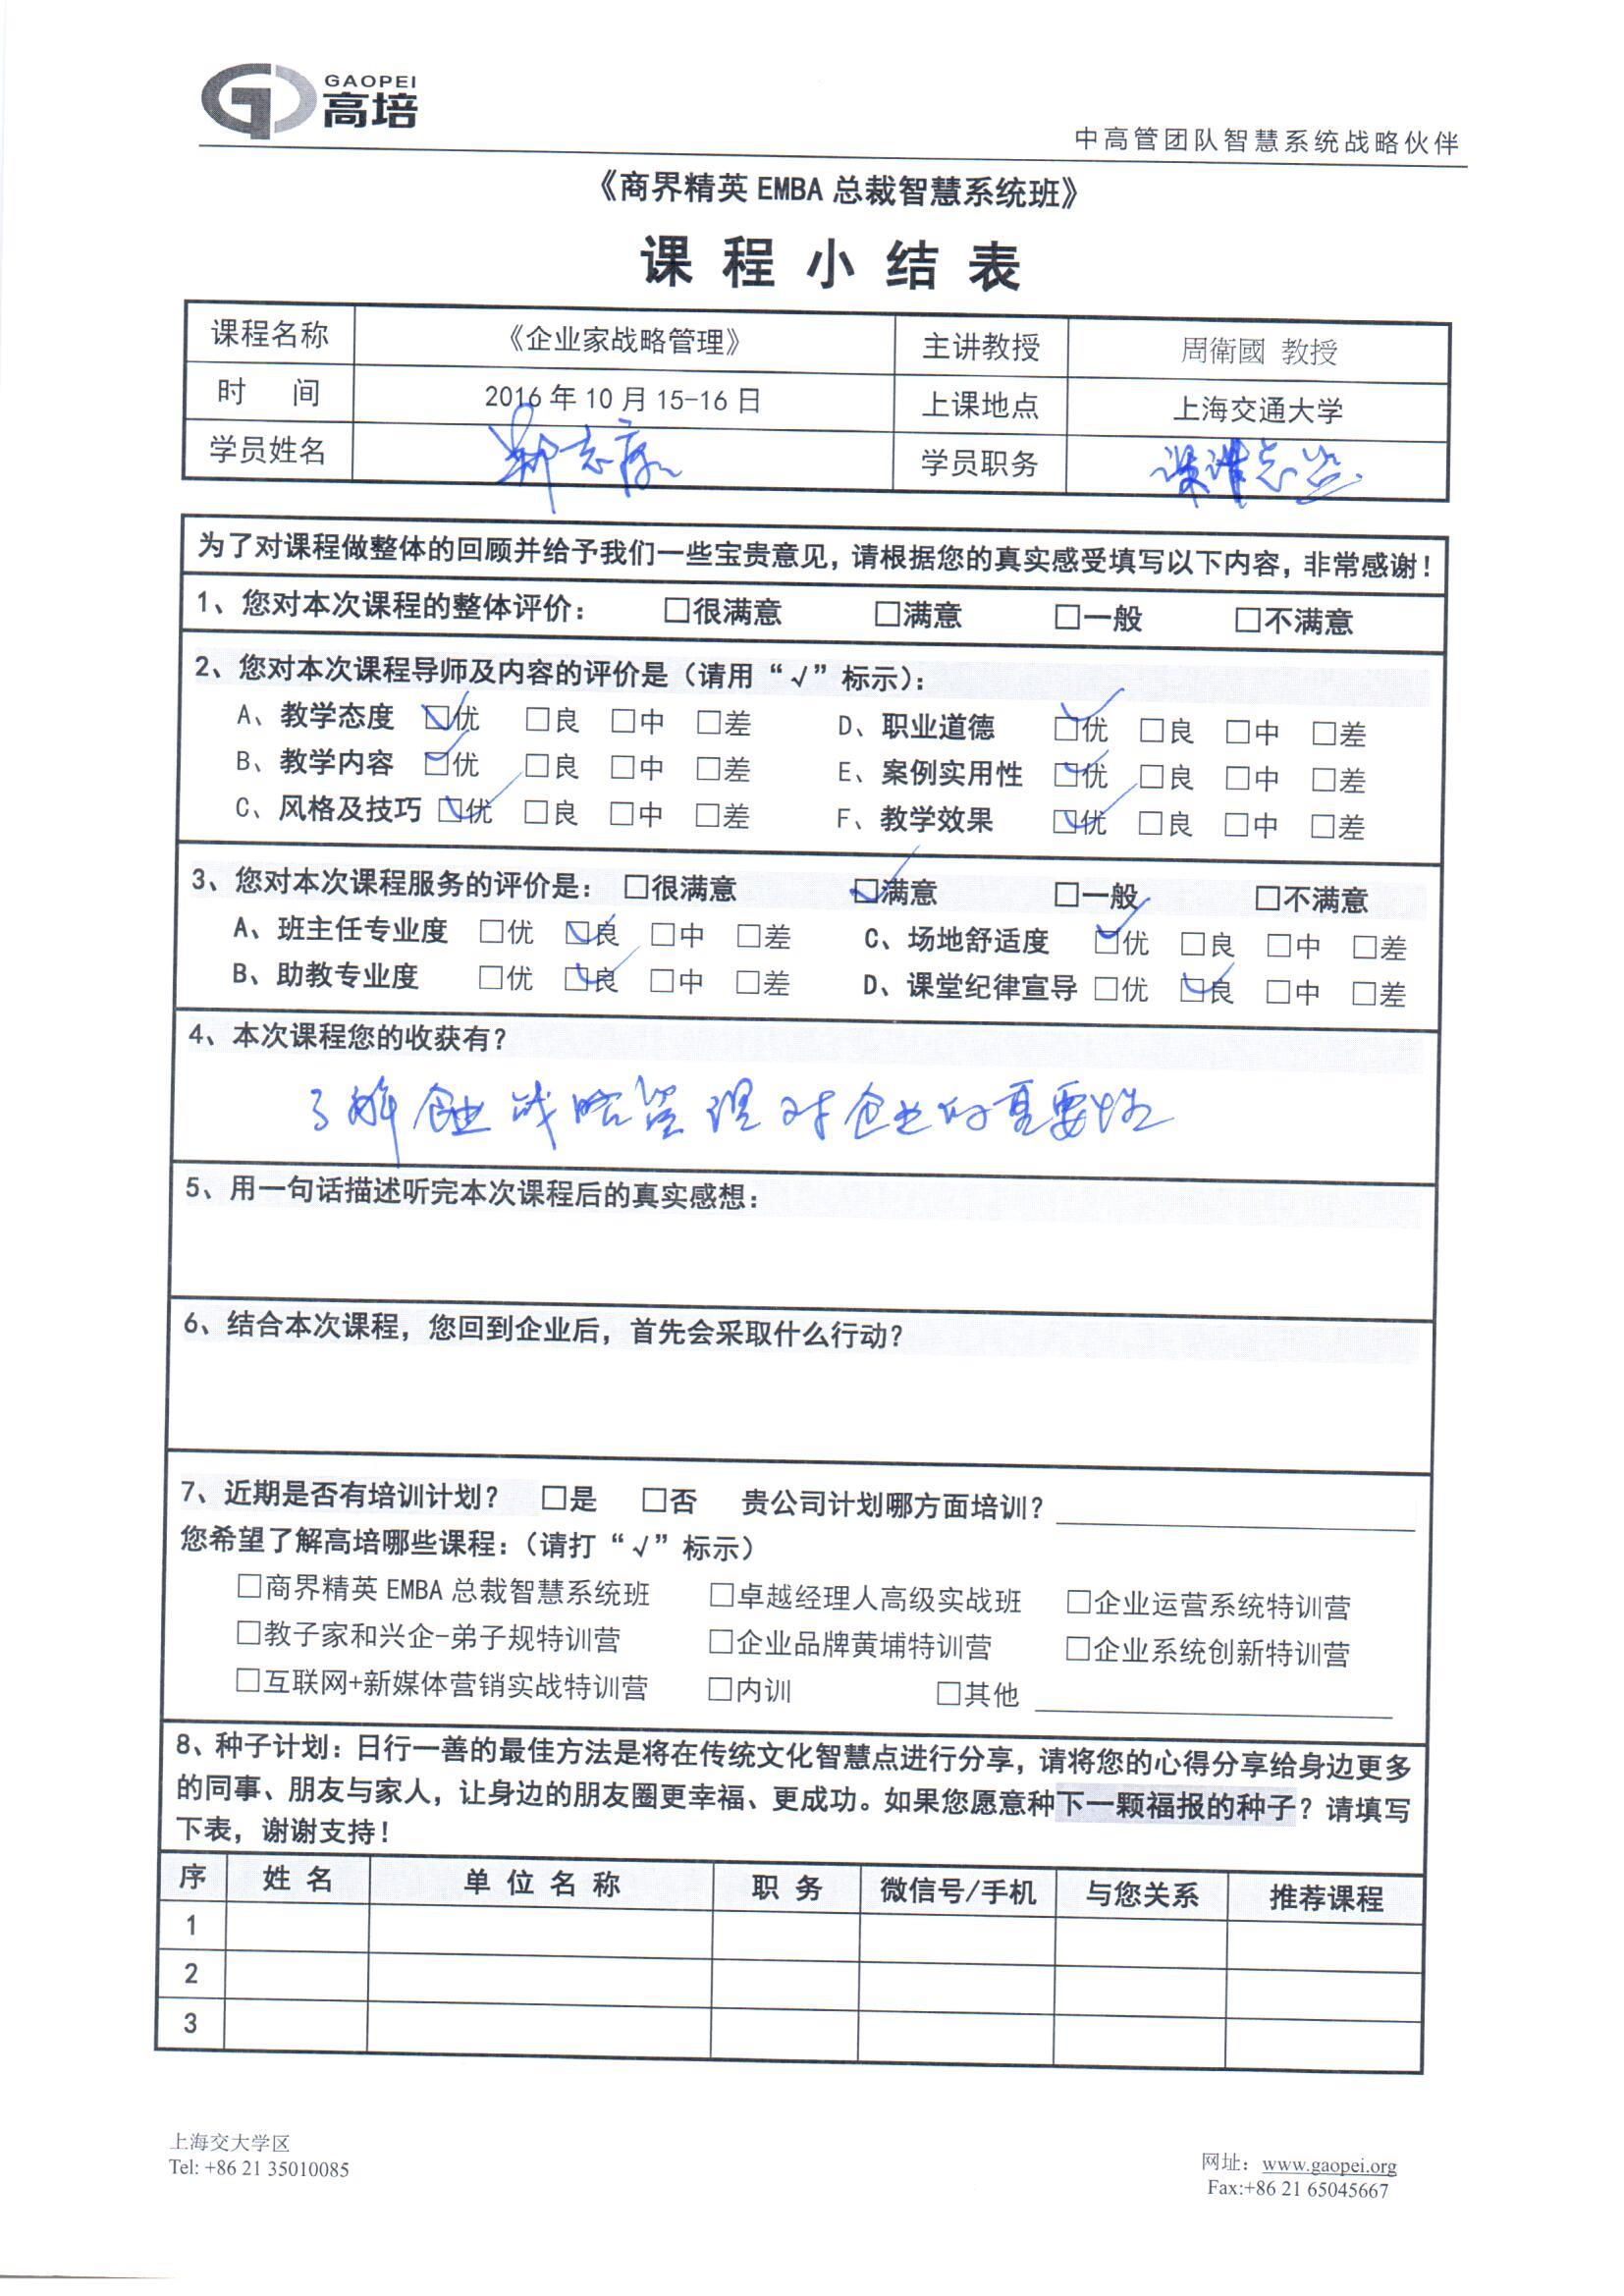 GAOPEI
高培
中高管团队智慧系统战略伙伴
《商界精英 EMBA 总裁智慧系统班》
课程小结表
课程名称 《企业家战略管理》 主讲教授 周衛國 教授
时 间 2016 年 10 月 15-16 日 上课地点 上海交通大学
学员姓名 学员职务
为了对课程做整体的回顾并给予我们一些宝贵意见，请根据您的真实感受填写以下内容，非常感谢！
1、您对本次课程的整体评价： □很满意 □满意 □一般 □不满意
2、您对本次课程导师及内容的评价是（请用“√”标示）：
A、教学态度 ☑优 □良 □中 □差 D、职业道德 ☑优 □良 □中 □差
B、教学内容 ☑优 □良 □中 □差 E、案例实用性 ☑优 □良 □中 □差
C、风格及技巧 ☑优 □良 □中 □差 F、教学效果 ☑优 □良 □中 □差
3、您对本次课程服务的评价是： □很满意 ☑满意 □一般 □不满意
A、班主任专业度 □优 ☑良 □中 □差 C、场地舒适度 ☑优 □良 □中 □差
B、助教专业度 □优 ☑良 □中 □差 D、课堂纪律宣导 □优 ☑良 □中 □差
4、本次课程您的收获有？
了解企业战略管理对企业的重要性
5、用一句话描述听完本次课程后的真实感想：
6、结合本次课程，您回到企业后，首先会采取什么行动？
7、近期是否有培训计划？ □是 □否 贵公司计划哪方面培训？
您希望了解高培哪些课程：（请打“√”标示）
□商界精英 EMBA 总裁智慧系统班 □卓越经理人高级实战班 □企业运营系统特训营
□教子家和兴企-弟子规特训营 □企业品牌黄埔特训营 □企业系统创新特训营
□互联网+新媒体营销实战特训营 □内训 □其他
8、种子计划：日行一善的最佳方法是将在传统文化智慧点进行分享，请将您的心得分享给身边更多
的同事、朋友与家人，让身边的朋友圈更幸福、更成功。如果您愿意种下一颗福报的种子？请填写
下表，谢谢支持！
序 姓 名 单 位 名 称 职 务 微信号/手机 与您关系 推荐课程
1
2
3
上海交大学区
Tel: +86 21 35010085
网址：www.gaopei.org
Fax:+86 21 65045667